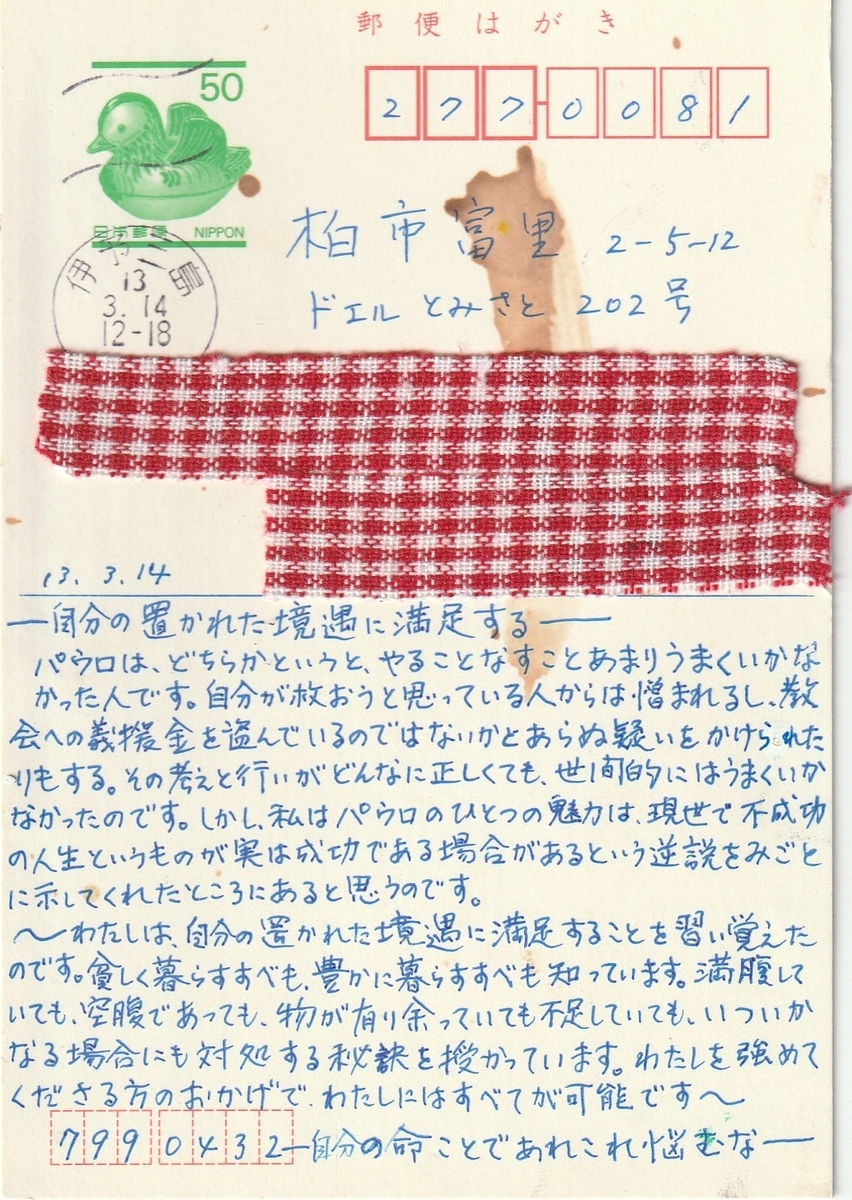 郵便はがき
50
日本郵便 NIPPON
277-0081
柏市富里 2-5-12
ドエルとみさと 202号
伊予三島
13
3.14
12-18
13.3.14
―自分の置かれた境遇に満足する―
パウロは、どちらかというと、やることなすことあまりうまくいかな
かった人です。自分が救おうと思っている人からは憎まれるし、教
会への義援金を盗んでいるのではないかとあらぬ疑いをかけられた
りもする。その考えと行いがどんなに正しくても、世間的にはうまくいか
なかったのです。しかし、私はパウロのひとつの魅力は、現世で不成功
の人生というものが実は成功である場合があるという逆説をみごと
に示してくれたところにあると思うのです。
～わたしは、自分の置かれた境遇に満足することを習い覚えた
のです。貧しく暮らすすべも、豊かに暮らすすべも知っています。満腹して
いても、空腹であっても、物が有り余っていても不足していても、いついか
なる場合にも対処する秘訣を授かっています。わたしを強めて
くださる方のおかげで、わたしにはすべてが可能です～
7990432 ―自分の命ことであれこれ悩むな―